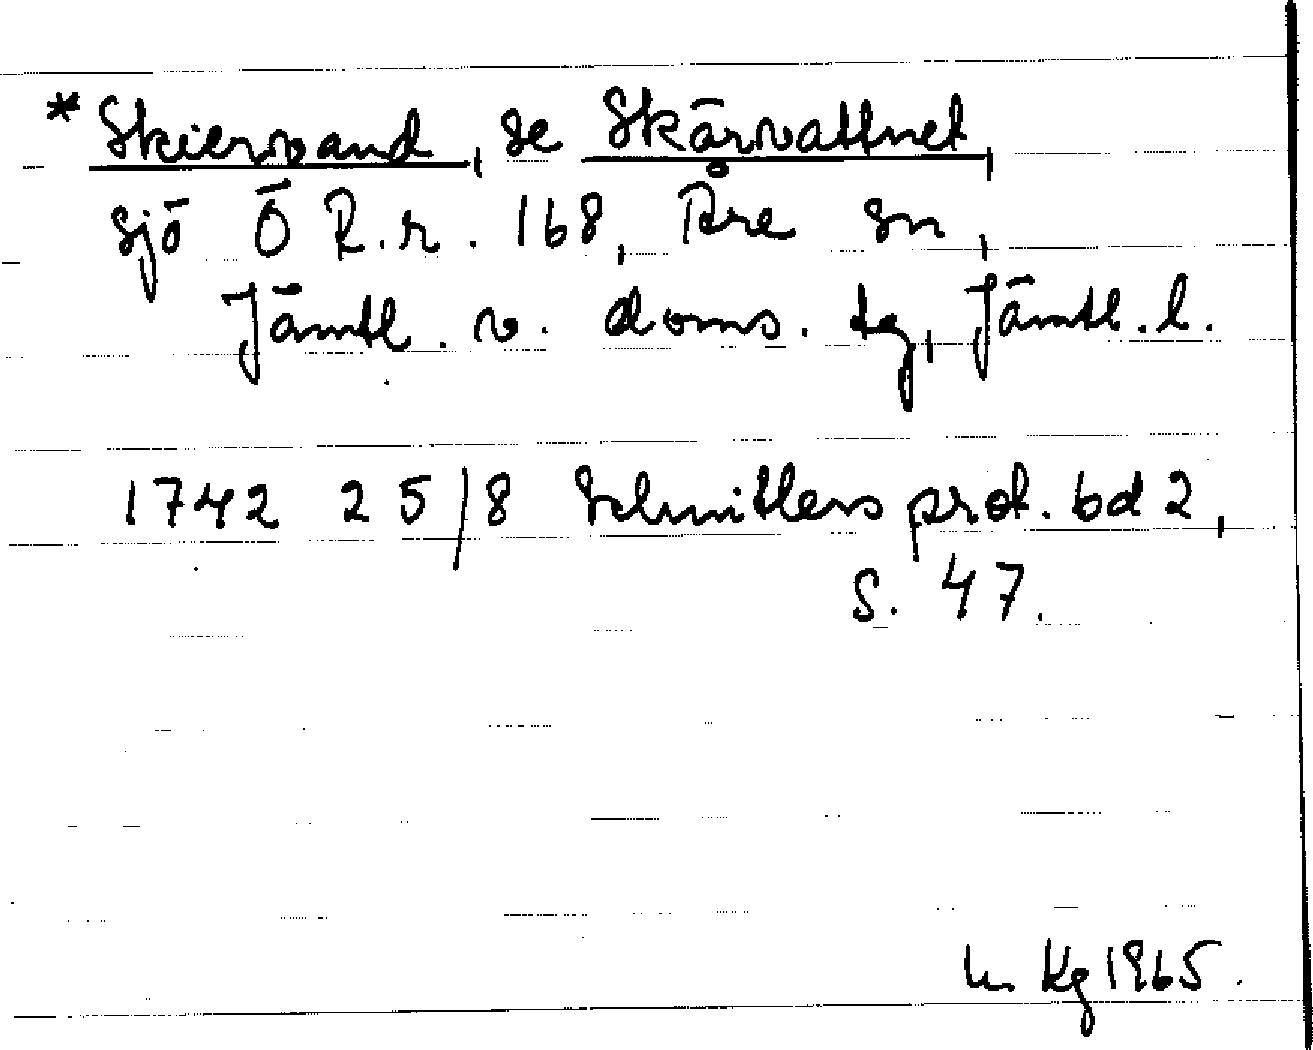 * Skiervand, se Skärvattnet,
sjö Ö R.r. 168, Åre sn,
Jämtl. v. doms. tg, Jämtl. l.
1742 25/8 Schnitlers prot. bd 2,
s. 47.
Kg 1965.